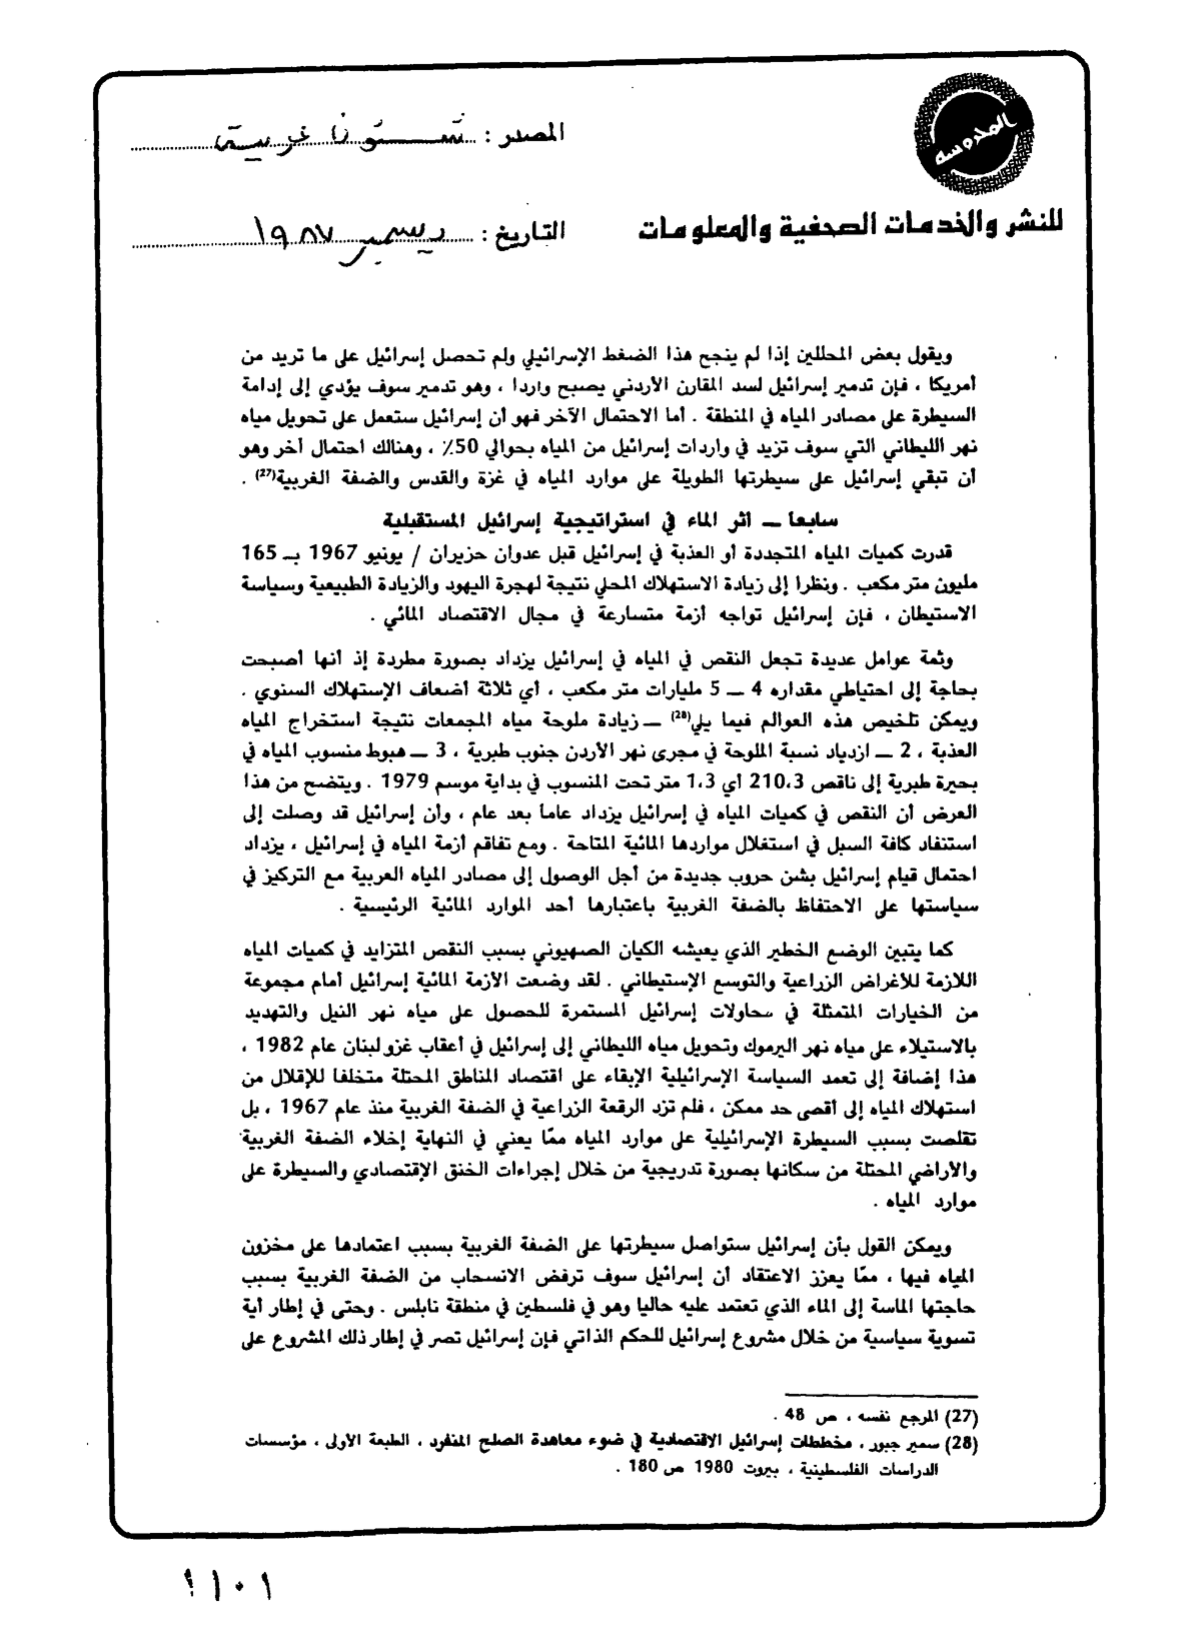 المحروسة
المصدر : شئون عربية
للنشر والخدمات الصحفية والمعلومات
التاريخ : ديسمبر ١٩٨٧
ويقول بعض المحللين إذا لم ينجح هذا الضغط الإسرائيلي ولم تحصل إسرائيل على ما تريد من
أمريكا ، فإن تدمير إسرائيل لسد المقارن الأردني يصبح واردا ، وهو تدمير سوف يؤدي إلى إدامة
السيطرة على مصادر المياه في المنطقة . أما الاحتمال الآخر فهو أن إسرائيل ستعمل على تحويل مياه
نهر الليطاني التي سوف تزيد في واردات إسرائيل من المياه بحوالي 50٪ ، وهنالك احتمال آخر وهو
أن تبقي إسرائيل على سيطرتها الطويلة على موارد المياه في غزة والقدس والضفة الغربية(27) .
سابعا ــ أثر الماء في استراتيجية إسرائيل المستقبلية
قدرت كميات المياه المتجددة أو العذبة في إسرائيل قبل عدوان حزيران / يونيو 1967 بــ 165
مليون متر مكعب . ونظرا إلى زيادة الاستهلاك المحلي نتيجة لهجرة اليهود والزيادة الطبيعية وسياسة
الاستيطان ، فإن إسرائيل تواجه أزمة متسارعة في مجال الاقتصاد المائي .
وثمة عوامل عديدة تجعل النقص في المياه في إسرائيل يزداد بصورة مطردة إذ أنها أصبحت
بحاجة إلى احتياطي مقداره 4 ــ 5 مليارات متر مكعب ، أي ثلاثة أضعاف الإستهلاك السنوي .
ويمكن تلخيص هذه العوالم فيما يلي(28) ــ زيادة ملوحة مياه المجمعات نتيجة استخراج المياه
العذبة ، 2 ــ ازدياد نسبة الملوحة في مجرى نهر الأردن جنوب طبرية ، 3 ــ هبوط منسوب المياه في
بحيرة طبرية إلى ناقص 210،3 أي 1،3 متر تحت المنسوب في بداية موسم 1979 . ويتضح من هذا
العرض أن النقص في كميات المياه في إسرائيل يزداد عاماً بعد عام ، وأن إسرائيل قد وصلت إلى
استنفاد كافة السبل في استغلال مواردها المائية المتاحة . ومع تفاقم أزمة المياه في إسرائيل ، يزداد
احتمال قيام إسرائيل بشن حروب جديدة من أجل الوصول إلى مصادر المياه العربية مع التركيز في
سياستها على الاحتفاظ بالضفة الغربية باعتبارها أحد الموارد المائية الرئيسية .
كما يتبين الوضع الخطير الذي يعيشه الكيان الصهيوني بسبب النقص المتزايد في كميات المياه
اللازمة للأغراض الزراعية والتوسع الإستيطاني . لقد وضعت الأزمة المائية إسرائيل أمام مجموعة
من الخيارات المتمثلة في محاولات إسرائيل المستمرة للحصول على مياه نهر النيل والتهديد
بالاستيلاء على مياه نهر اليرموك وتحويل مياه الليطاني إلى إسرائيل في أعقاب غزو لبنان عام 1982 ،
هذا إضافة إلى تعمد السياسة الإسرائيلية الإبقاء على اقتصاد المناطق المحتلة متخلفا للإقلال من
استهلاك المياه إلى أقصى حد ممكن ، فلم تزد الرقعة الزراعية في الضفة الغربية منذ عام 1967 ، بل
تقلصت بسبب السيطرة الإسرائيلية على موارد المياه ممّا يعني في النهاية إخلاء الضفة الغربية
والأراضي المحتلة من سكانها بصورة تدريجية من خلال إجراءات الخنق الإقتصادي والسيطرة على
موارد المياه .
ويمكن القول بأن إسرائيل ستواصل سيطرتها على الضفة الغربية بسبب اعتمادها على مخزون
المياه فيها ، ممّا يعزز الاعتقاد أن إسرائيل سوف ترفض الانسحاب من الضفة الغربية بسبب
حاجتها الماسة إلى الماء الذي تعتمد عليه حاليا وهو في فلسطين في منطقة نابلس . وحتى في إطار أية
تسوية سياسية من خلال مشروع إسرائيل للحكم الذاتي فإن إسرائيل تصر في إطار ذلك المشروع على
(27) المرجع نفسه ، ص 48 .
(28) سمير جبور ، مخططات إسرائيل الاقتصادية في ضوء معاهدة الصلح المنفرد ، الطبعة الأولى ، مؤسسات
الدراسات الفلسطينية ، بيروت 1980 ص 180 .